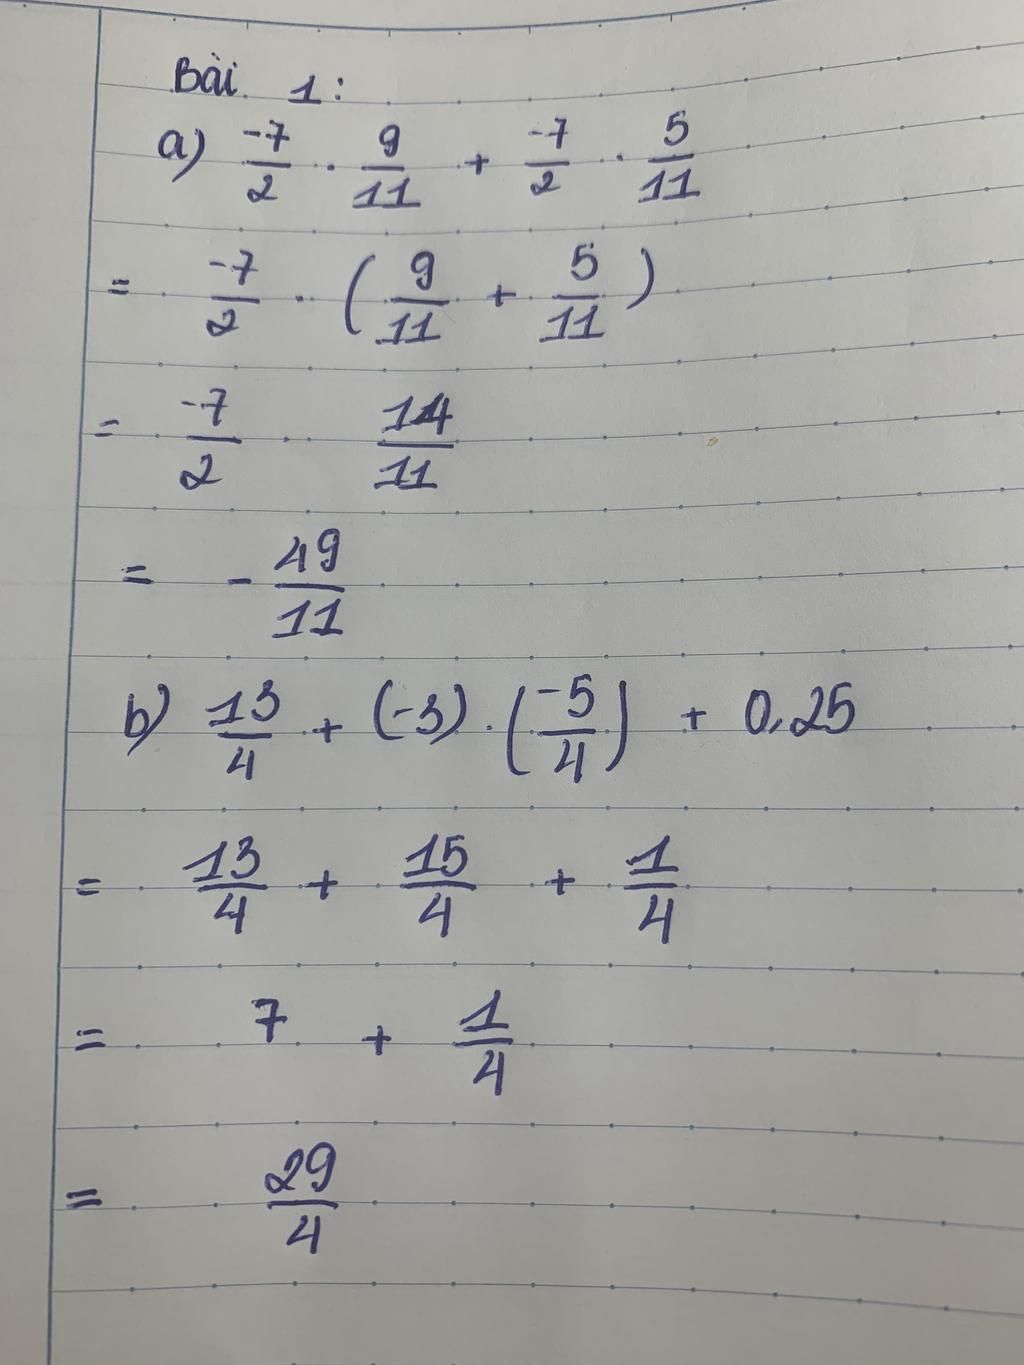 Bài 1:
a) -7/2 . 9/11 + -7/2 . 5/11
= -7/2 . (9/11 + 5/11)
= -7/2 . 14/11
= - 49/11
b) 13/4 + (-3) . (-5/4) + 0,25
= 13/4 + 15/4 + 1/4
= 7 + 1/4
= 29/4